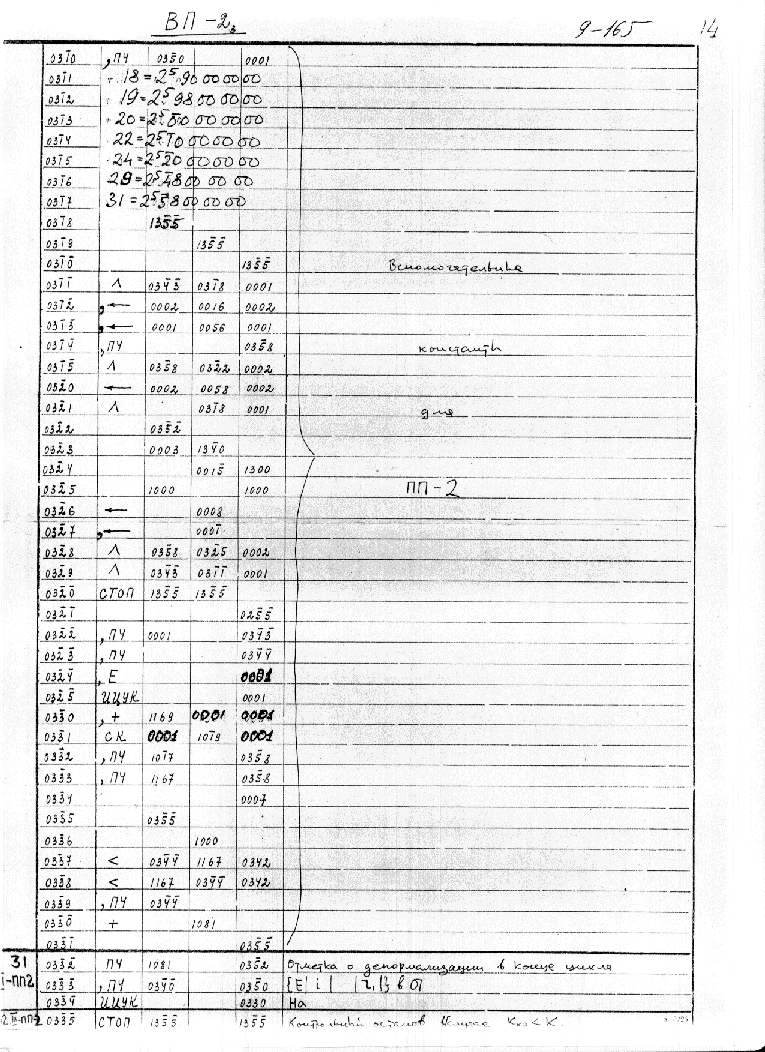 ВП-2₃ 9-165 14
03Ī0 ,ПУ 03̄50 0001
03Ī1 18 = 25̄.90 00 00 00
03Ī2 19 = 25̄ 98 00 00 00
03Ī3 20 = 25̄ 0̄0 00 00 00
03Ī4 22 = 25̄ 1̄0 00 00 00
03Ī5 24 = 25̄ 2̄0 00 00 00
03Ī6 29 = 25̄ 4̄8 00 00 00
03Ī7 31 = 25̄ 5̄8 00 00 00
03Ī8 135̄5̄
03Ī9 135̄5̄
03Ī0̄ 135̄5̄ Вспомогательные
03ĪĪ Λ 034̄3̄ 03Ī8 0001
03Ī2̄ ,← 0002 0016 0002
03Ī3̄ ,← 0001 0056 0001
03Ī4̄ ,ПУ 035̄8 константы
03Ī5̄ Λ 035̄8 032̄2 0002
032̄0 ← 0002 0058 0002
032̄1 Λ 03Ī8 0001 для
032̄2 035̄2
032̄3 0003 134̄0
032̄4 0015̄ 1300
032̄5 1000 1000 ПП-2
032̄6 ← 0008
032̄7 ,← 000Ī
032̄8 Λ 035̄8 032̄5 0002
032̄9 Λ 034̄3̄ 03ĪĪ 0001
032̄0̄ СТОП 135̄5̄ 135̄5̄
032̄Ī 025̄5̄
032̄2̄ ,ПУ 0001 03Ī3̄
032̄3̄ ,ПУ 034̄4̄
032̄4̄ ,Е 0001
032̄5̄ ИЦУК 0001
033̄0 ,+ 1169 0001 0001
033̄1 СК 0001 10Ī9 0001
033̄2 ,ПУ 10Ī7 035̄8
033̄3 ,ПУ 1167 035̄8
033̄4 0007
033̄5 035̄5̄
033̄6 1000
033̄7 < 034̄4̄ 1167 0342
033̄8 < 1167 034̄4̄ 0342
033̄9 ,ПУ 034̄4̄
033̄0̄ + 1081
033̄Ī 035̄5̄
31 033̄2̄ ПУ 1081 035̄2 Отметка о денормализации в конце цикла
I-ПП2 033̄3̄ ,ПУ 034̄0̄ 035̄0
033̄4̄ ИЦУК 0330 На
033̄5̄ СТОП 135̄5̄ 135̄5̄ Контрольный останов